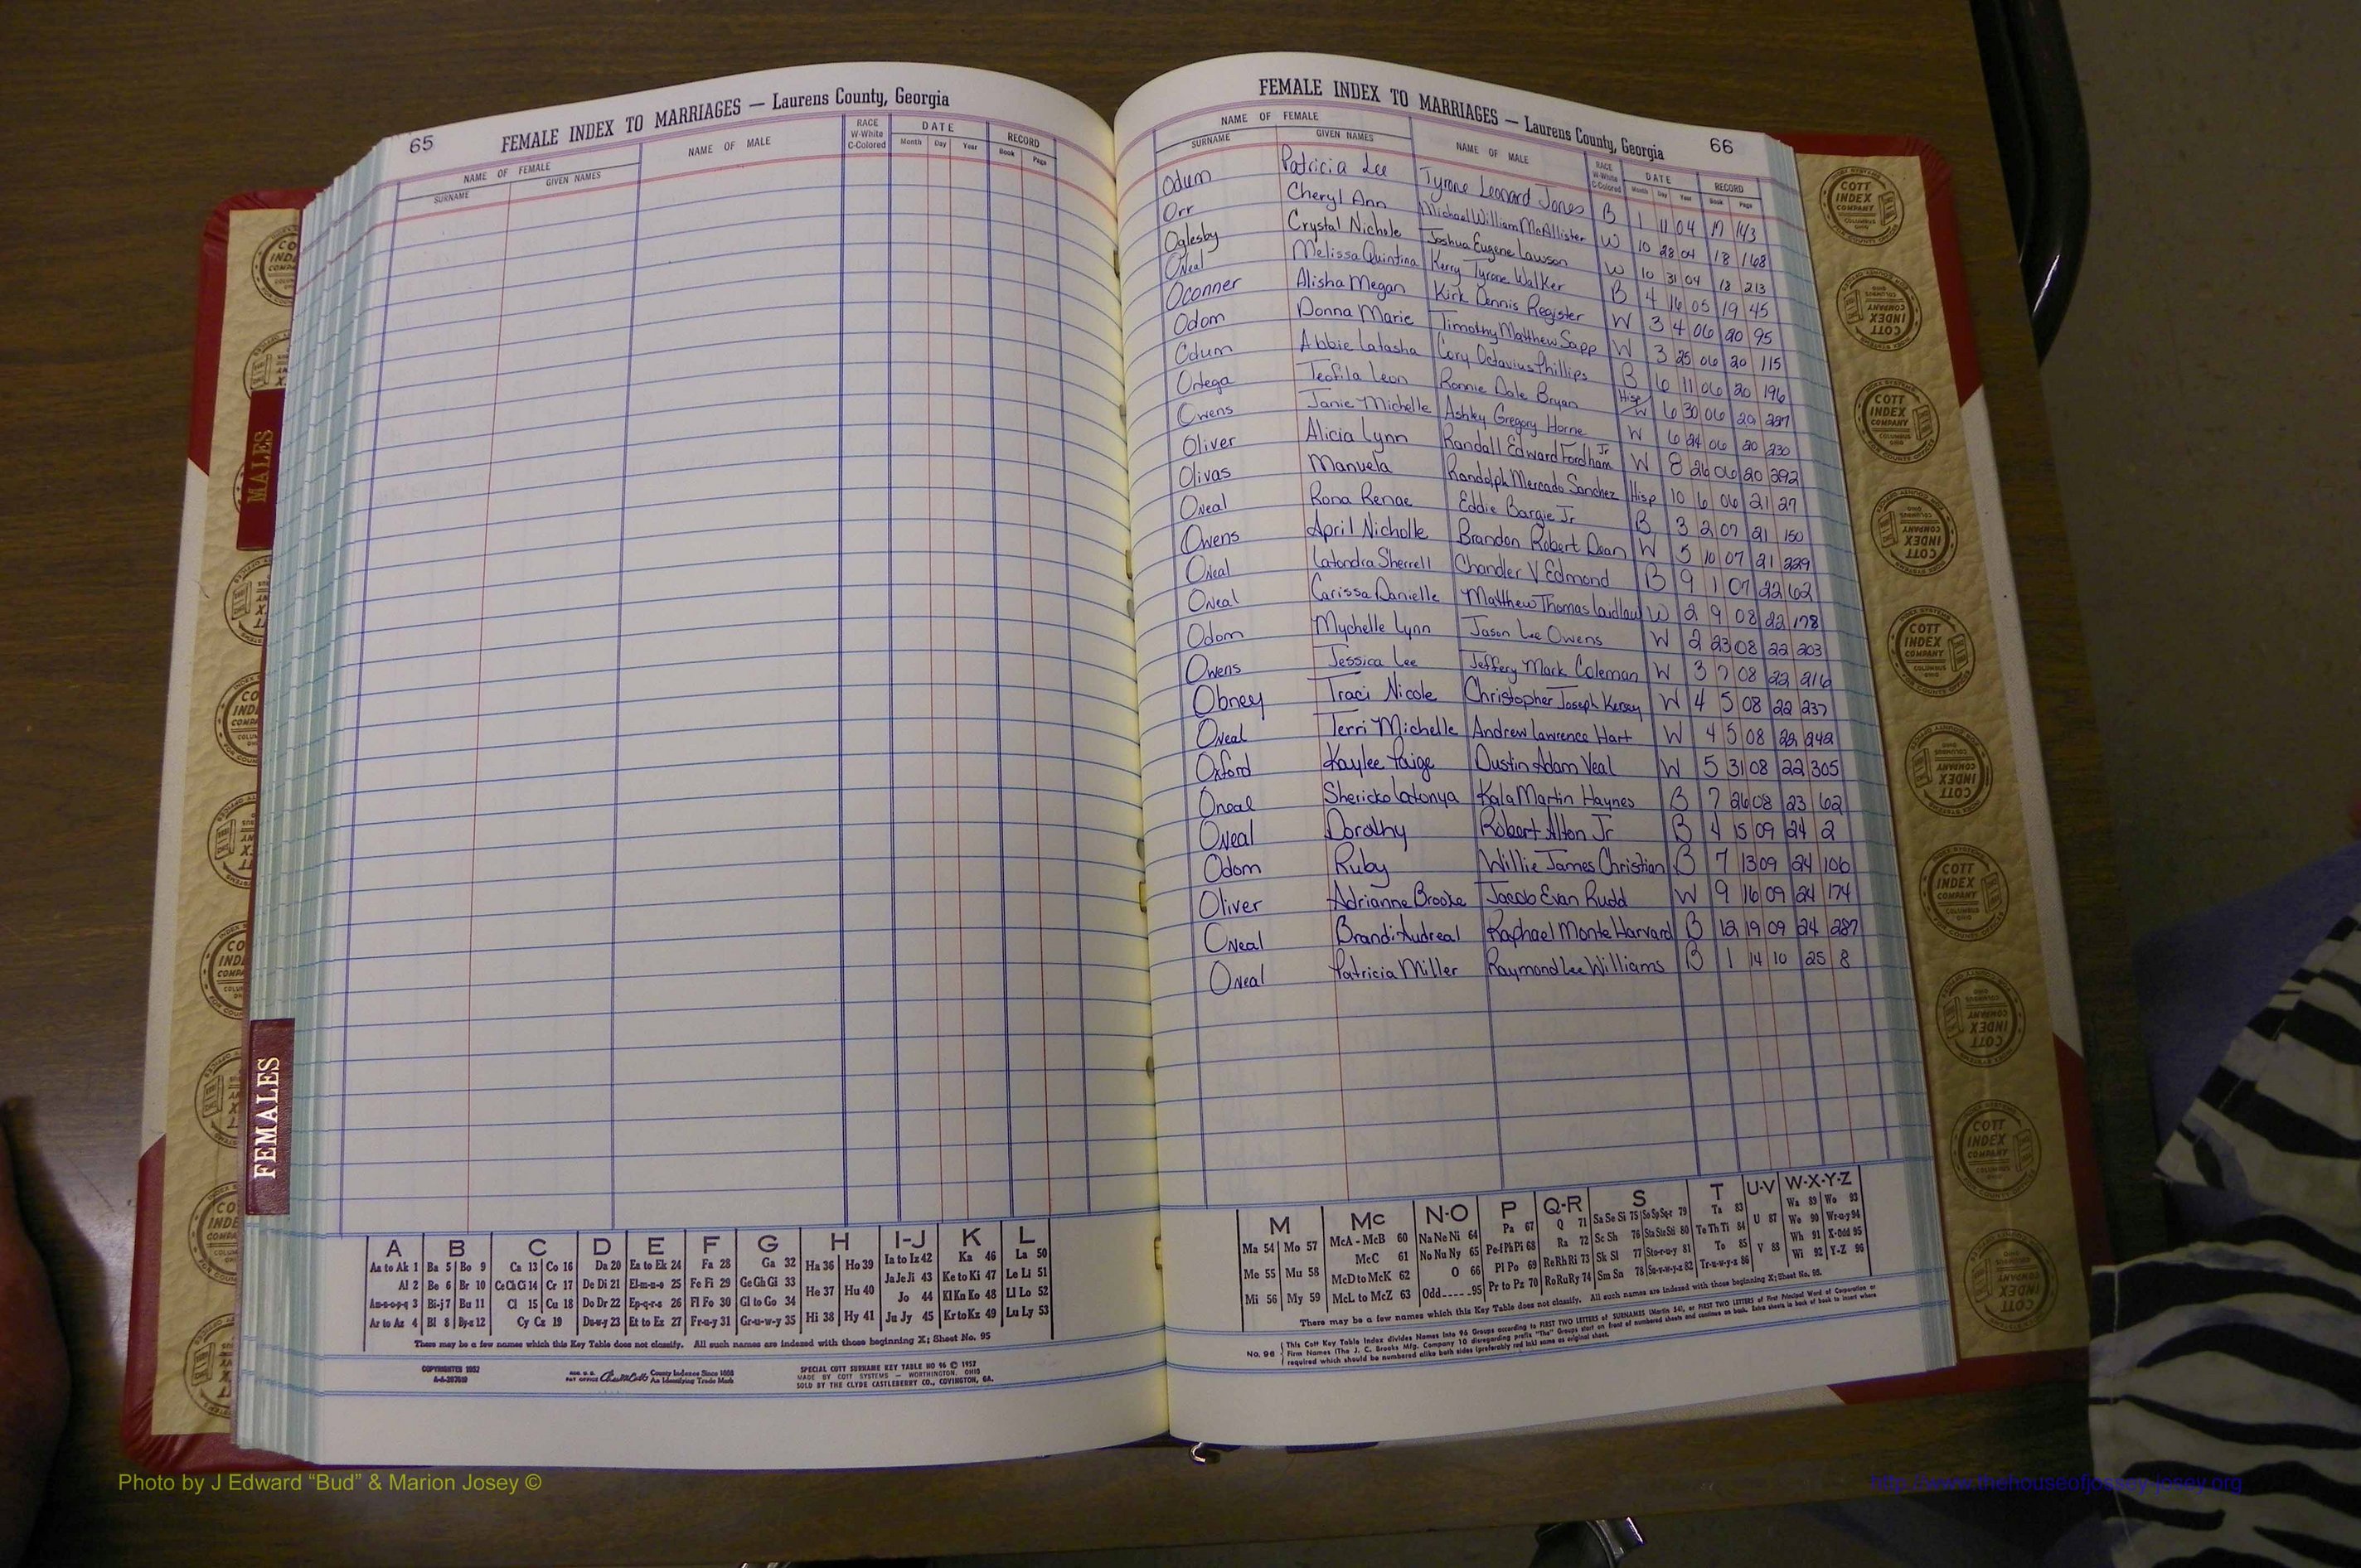 65
FEMALE INDEX TO MARRIAGES — Laurens County, Georgia
NAME OF FEMALE NAME OF MALE RACE W-White C-Colored DATE RECORD
SURNAME GIVEN NAMES Month Day Year Book Page
MALES
FEMALES
A B C D E F G H I-J K L
Aa to Ak 1 Ba 5 Bo 9 Ca 13 Co 16 Da 20 Ea to Ek 24 Fa 28 Ga 32 Ha 36 Ho 39 Ia to Iz 42 Ka 46 La 50
Al 2 Be 6 Br 10 Ce Ch Ci 14 Cr 17 De Di 21 El-m-n-o 25 Fe Fi 29 Ge Gh Gi 33 He 37 Hu 40 Ja Je Ji 43 Ke to Ki 47 Le Li 51
Am-n-o-p-q 3 Bi-j 7 Bu 11 Cl 15 Cu 18 Do Dr 22 Ep-q-r-s 26 Fl Fo 30 Gl to Go 34 Jo 44 Kl Kn Ko 48 Ll Lo 52
Ar to Az 4 Bl 8 By-z 12 Cy Cz 19 Du-w-y 23 Et to Ez 27 Fr-u-y 31 Gr-u-w-y 35 Hi 38 Hy 41 Ju Jy 45 Kr to Kz 49 Lu Ly 53
There may be a few names which this Key Table does not classify. All such names are indexed with those beginning X; Sheet No. 95
COPYRIGHTED 1952
County Indexes Since 1888
An Identifying Trade Mark
SPECIAL COTT SURNAME KEY TABLE NO 96 © 1952
MADE BY COTT SYSTEMS — WORTHINGTON, OHIO
SOLD BY THE CLYDE CASTLEBERRY CO., COVINGTON, GA.
FEMALE INDEX TO MARRIAGES — Laurens County, Georgia
66
NAME OF FEMALE NAME OF MALE RACE W-White C-Colored DATE RECORD
SURNAME GIVEN NAMES Month Day Year Book Page
Odum Patricia Lee Tyrone Leonard Jones B 1 11 04 17 143
Orr Cheryl Ann Michael William McAllister W 10 28 04 18 168
Oglesby Crystal Nichole Joshua Eugene Lawson W 10 31 04 18 213
ONeal Melissa Quintina Kerry Tyrone Walker B 4 16 05 19 45
Oconner Alisha Megan Kirk Dennis Register W 3 4 06 20 95
Odom Donna Marie Timothy Matthew Sapp W 3 25 06 20 115
Odum Abbie Latasha Cory Octavius Phillips B 6 11 06 20 196
Ortega Teofila Leon Ronnie Dale Bryan Hisp/W 6 30 06 20
Owens Janie Michelle Ashley Gregory Horne W 6 24 06 20 230
Oliver Alicia Lynn Randall Edward Fordham Jr W 8 26 06 20 292
Olivas Manuela Randolph Mercado Sanchez Hisp 10 6 06 21 27
Oneal Rona Renae Eddie Bargie Jr B 3 2 07 21 150
Owens April Nicholle Brandon Robert Dean W 5 10 07 21 229
ONeal Latondra Sherrell Chandler V Edmond B 9 1 07 22 62
ONeal Carissa Danielle Matthew Thomas Laidlaw W 2 9 08 22 178
Odom Mychelle Lynn Jason Lee Owens W 2 23 08 22 203
Owens Jessica Lee Jeffery Mark Coleman W 3 7 08 22 216
Obney Traci Nicole Christopher Joseph Kersey W 4 5 08 22 237
ONeal Terri Michelle Andrew Lawrence Hart W 4 5 08 22 242
Oxford Kaylee Paige Dustin Adam Veal W 5 31 08 22 305
Oneal Shericka Latonya Kala Martin Haynes B 7 26 08 23 62
ONeal Dorothy Robert Alton Jr B 4 15 09 24 2
Odom Ruby Willie James Christian B 7 13 09 24 106
Oliver Adrianne Brooke Jacob Evan Rudd W 9 16 09 24 174
ONeal Brandi Audreal Raphael Monte Harvard B 12 19 09 24 287
ONeal Patricia Miller Raymond Lee Williams B 1 14 10 25 8
M Mc N-O P Q-R S T U-V W-X-Y-Z
Ma 54 Mo 57 McA - McB 60 Na Ne Ni 64 Pa 67 Q 71 Sa Se Si 75 So Sp Sq-r 79 Ta 83 U 87 Wa 89 Wo 93
Me 55 Mu 58 McC 61 No Nu Ny 65 Pe-f Ph Pi 68 Ra 72 Sc Sh 76 Sta Ste Sti 80 Te Th Ti 84 We 90 Wr-u-y 94
McD to McK 62 O 66 Pl Po 69 Re Rh Ri 73 Sk Sl 77 Sto-r-u-y 81 To 85 V 88 Wh 91 X-Odd 95
Mi 56 My 59 McL to McZ 63 Odd 95 Pr to Pz 70 Ro Ru Ry 74 Sm Sn 78 Su-v-w-y-z 82 Tr-u-w-y-z 86 Wi 92 Y-Z 96
There may be a few names which this Key Table does not classify. All such names are indexed with those beginning X; Sheet No. 95.
No. 96 This Cott Key Table Index divides Names into 96 Groups according to FIRST TWO LETTERS of SURNAMES (Martin 54), or FIRST TWO LETTERS of First Principal Word of Corporation or
Firm Names (The J. C. Brooks Mfg. Company 10 disregarding prefix "The" Groups start on front of numbered sheets and continues on back. Extra sheets in back of book to insert where
required which should be numbered alike both sides (preferably red ink) same as original sheet.
COTT INDEX COMPANY COLUMBUS OHIO
Photo by J Edward “Bud” & Marion Josey ©
http://www.thehouseofjossey-josey.org